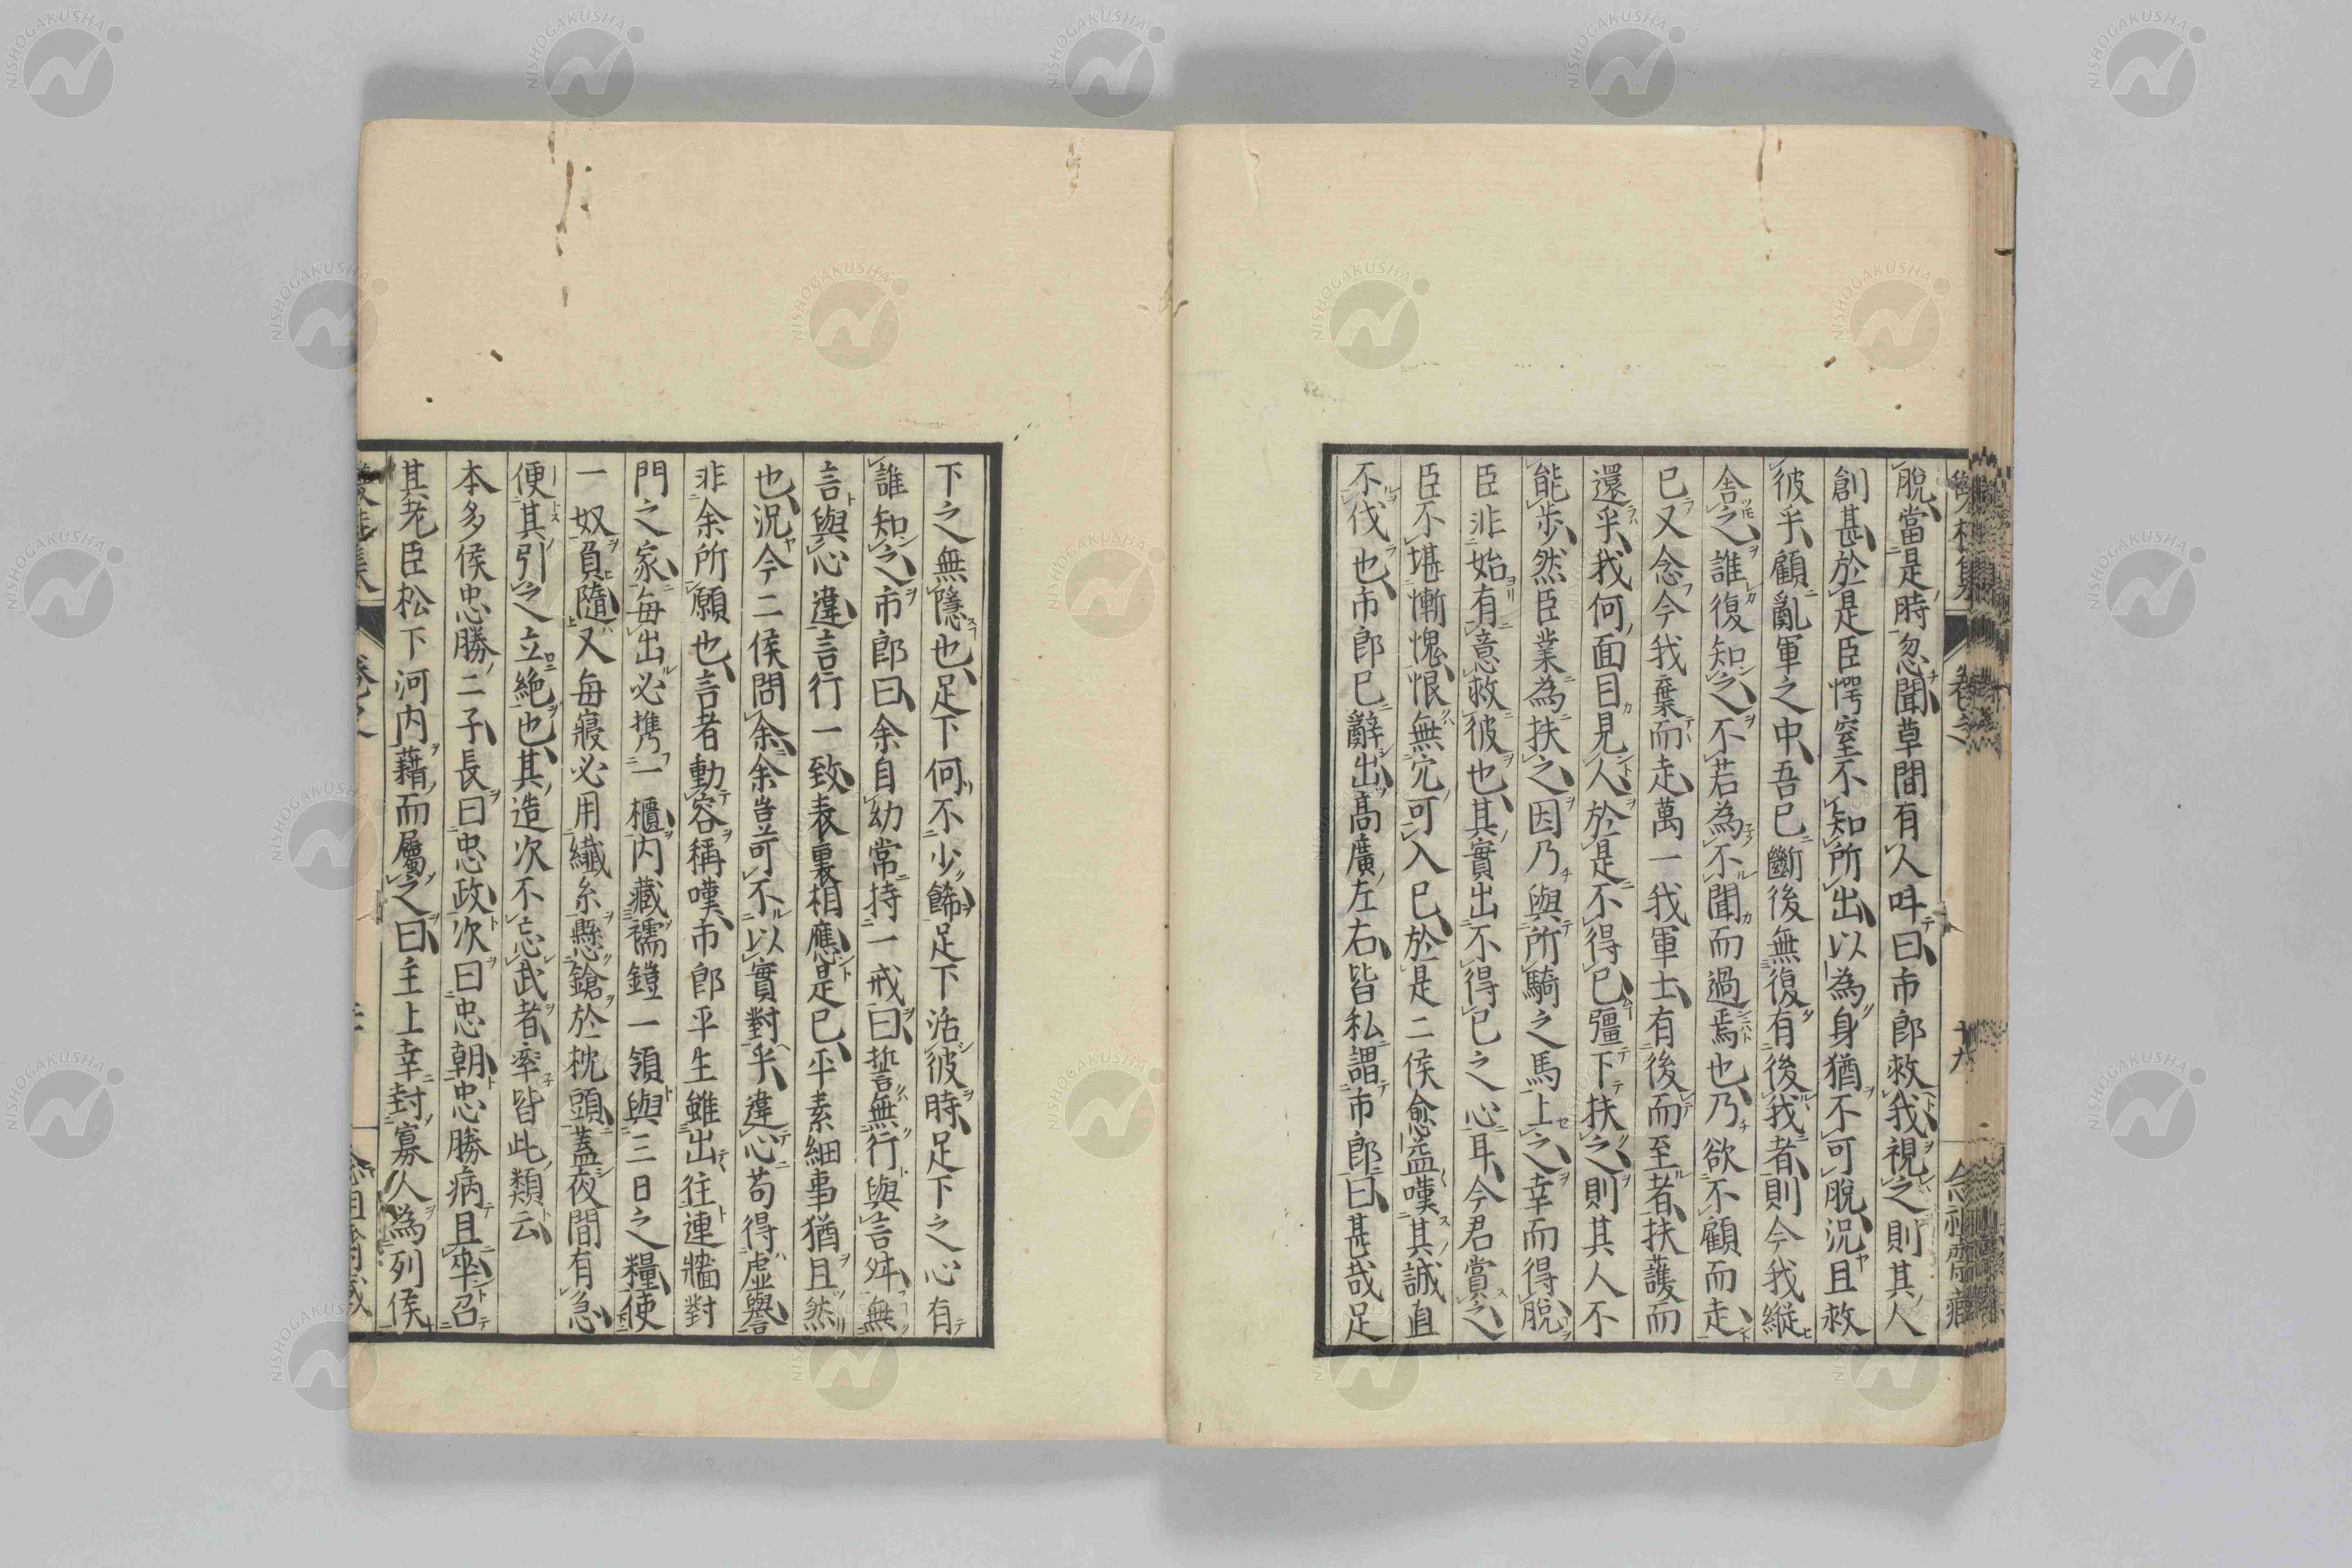 脱當是時忽聞草間有人呌曰市郎救我視之則其人
創甚於是臣愕窒不知所出以為身猶不可脱況且救
彼乎顧亂軍之中吾已斷後無復有後我者則今我縦
舎之誰復知之不若為不聞而過焉也乃欲不顧而走
已又念今我棄而走萬一我軍士有後而至者扶護而
還乎我何面目見人於是不得已彊下扶之則其人不
能歩然臣業為扶之因乃與所騎之馬上之幸而得脱
臣非始有意救彼也其實出不得已之心耳今君賞之
臣不堪慚愧恨無宂可入已於是二侯愈益嘆其誠直
不伐也市郎已辭出髙廣左右皆私謂市郎曰甚哉足
下之無隱也足下何不少餙足下活彼時足下之心有
誰知之市郎曰余自幼常持一戒曰誓無行與言舛無
言與心違言行一致表裏相應是已平素細事猶且然
也況今二侯問余余豈可不以實對乎違心苟得虛譽
非余所願也言者動容稱嘆市郎平生雖出往連牆對
門之家毎出必携一櫃内藏襦鎧一領與三日之糧使
一奴負隨又毎寢必用纎糸懸鎗於枕頭蓋夜間有急
便其引之立絶也其造次不忘武者率皆此類云
本多侯忠勝二子長曰忠政次曰忠朝忠勝病且卒召
其老臣松下河内藉而屬之曰主上幸封寡人為列侯
卷之
十九
NISHOGAKUSHA